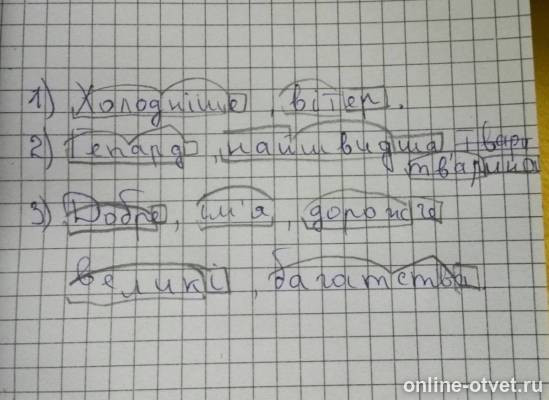 1) Холодніше, вітер.
2) Гепард, найшвидша твари
тварина
3) Добре, ім'я, дорожче
великі, багатства.
online-otvet.ru